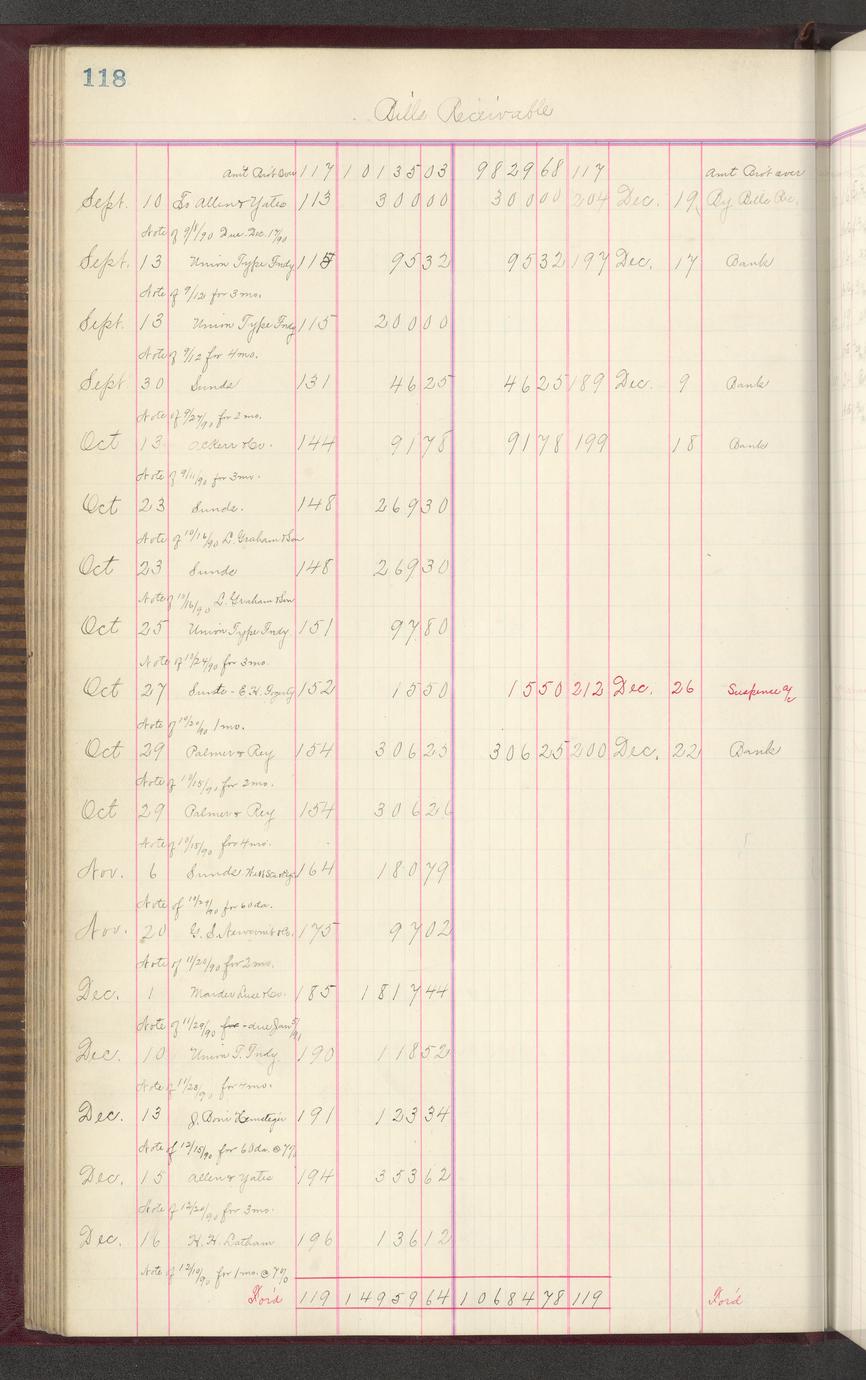 118
Bills Receivable
Amt Bro't Over 117 10135 03 9829 68 117 Amt Bro't over
Sept. 10 Allen & Yates 113 300 00 300 00 204 Dec. 19 By Bills Rec.
Note of 9/8/90 Due Dec. 17/90
Sept. 13 Union Type Fndy 115 95 32 95 32 197 Dec. 17 Bank
Note of 9/12 for 3 mo.
Sept. 13 Union Type Fndy 115 200 00
Note of 9/12 for 4 mo.
Sept 30 Sunds 131 46 25 46 25 189 Dec. 9 Bank
Note of 9/27/90 for 2 mo.
Oct 13 144 91 78 91 78 199 18 Bank
Note of 9/11/90 for 3 mo.
Oct 23 Sunds. 148 269 30
Note of 10/16/90 L. Graham & Son
Oct 23 Sunds 148 269 30
Note of 10/16/90 L. Graham & Son
Oct 25 Union Type Fndy. 151 97 80
Note of 10/24/90 for 3 mo.
Oct 27 Sunds - E.H. 152 15 50 15 50 212 Dec. 26 Suspense a/c
Note of 10/20/90 1 mo.
Oct 29 Palmer & Rey 154 306 25 306 25 200 Dec. 22 Bank
Note of 10/15/90 for 2 mo.
Oct 29 Palmer & Rey 154 306 26
Note of 10/15/90 for 4 mo.
Nov. 6 Sunds 164 180 79
Note of 10/29/90 for 60 da.
Nov. 20 G. S. & Co. 175 97 02
Note of 11/20/90 for 2 mo.
Dec. 1 Marder Luse & Co. 185 1817 44
Note of 11/29/90 for - due Jan
Dec. 10 Union T. Fndy. 190 118 52
Note of 11/28/90 for mo.
Dec. 13 J. 191 123 34
Note of 12/15/90 for 60 da. @ 7%
Dec. 15 Allen & Yates 194 353 62
Note of 12/20/90 for 3 mo.
Dec. 16 H. H. Latham 196 136 12
Note of 12/10/90 for 1 mo. @ 7%
For'd 119 14959 64 10684 78 119 For'd